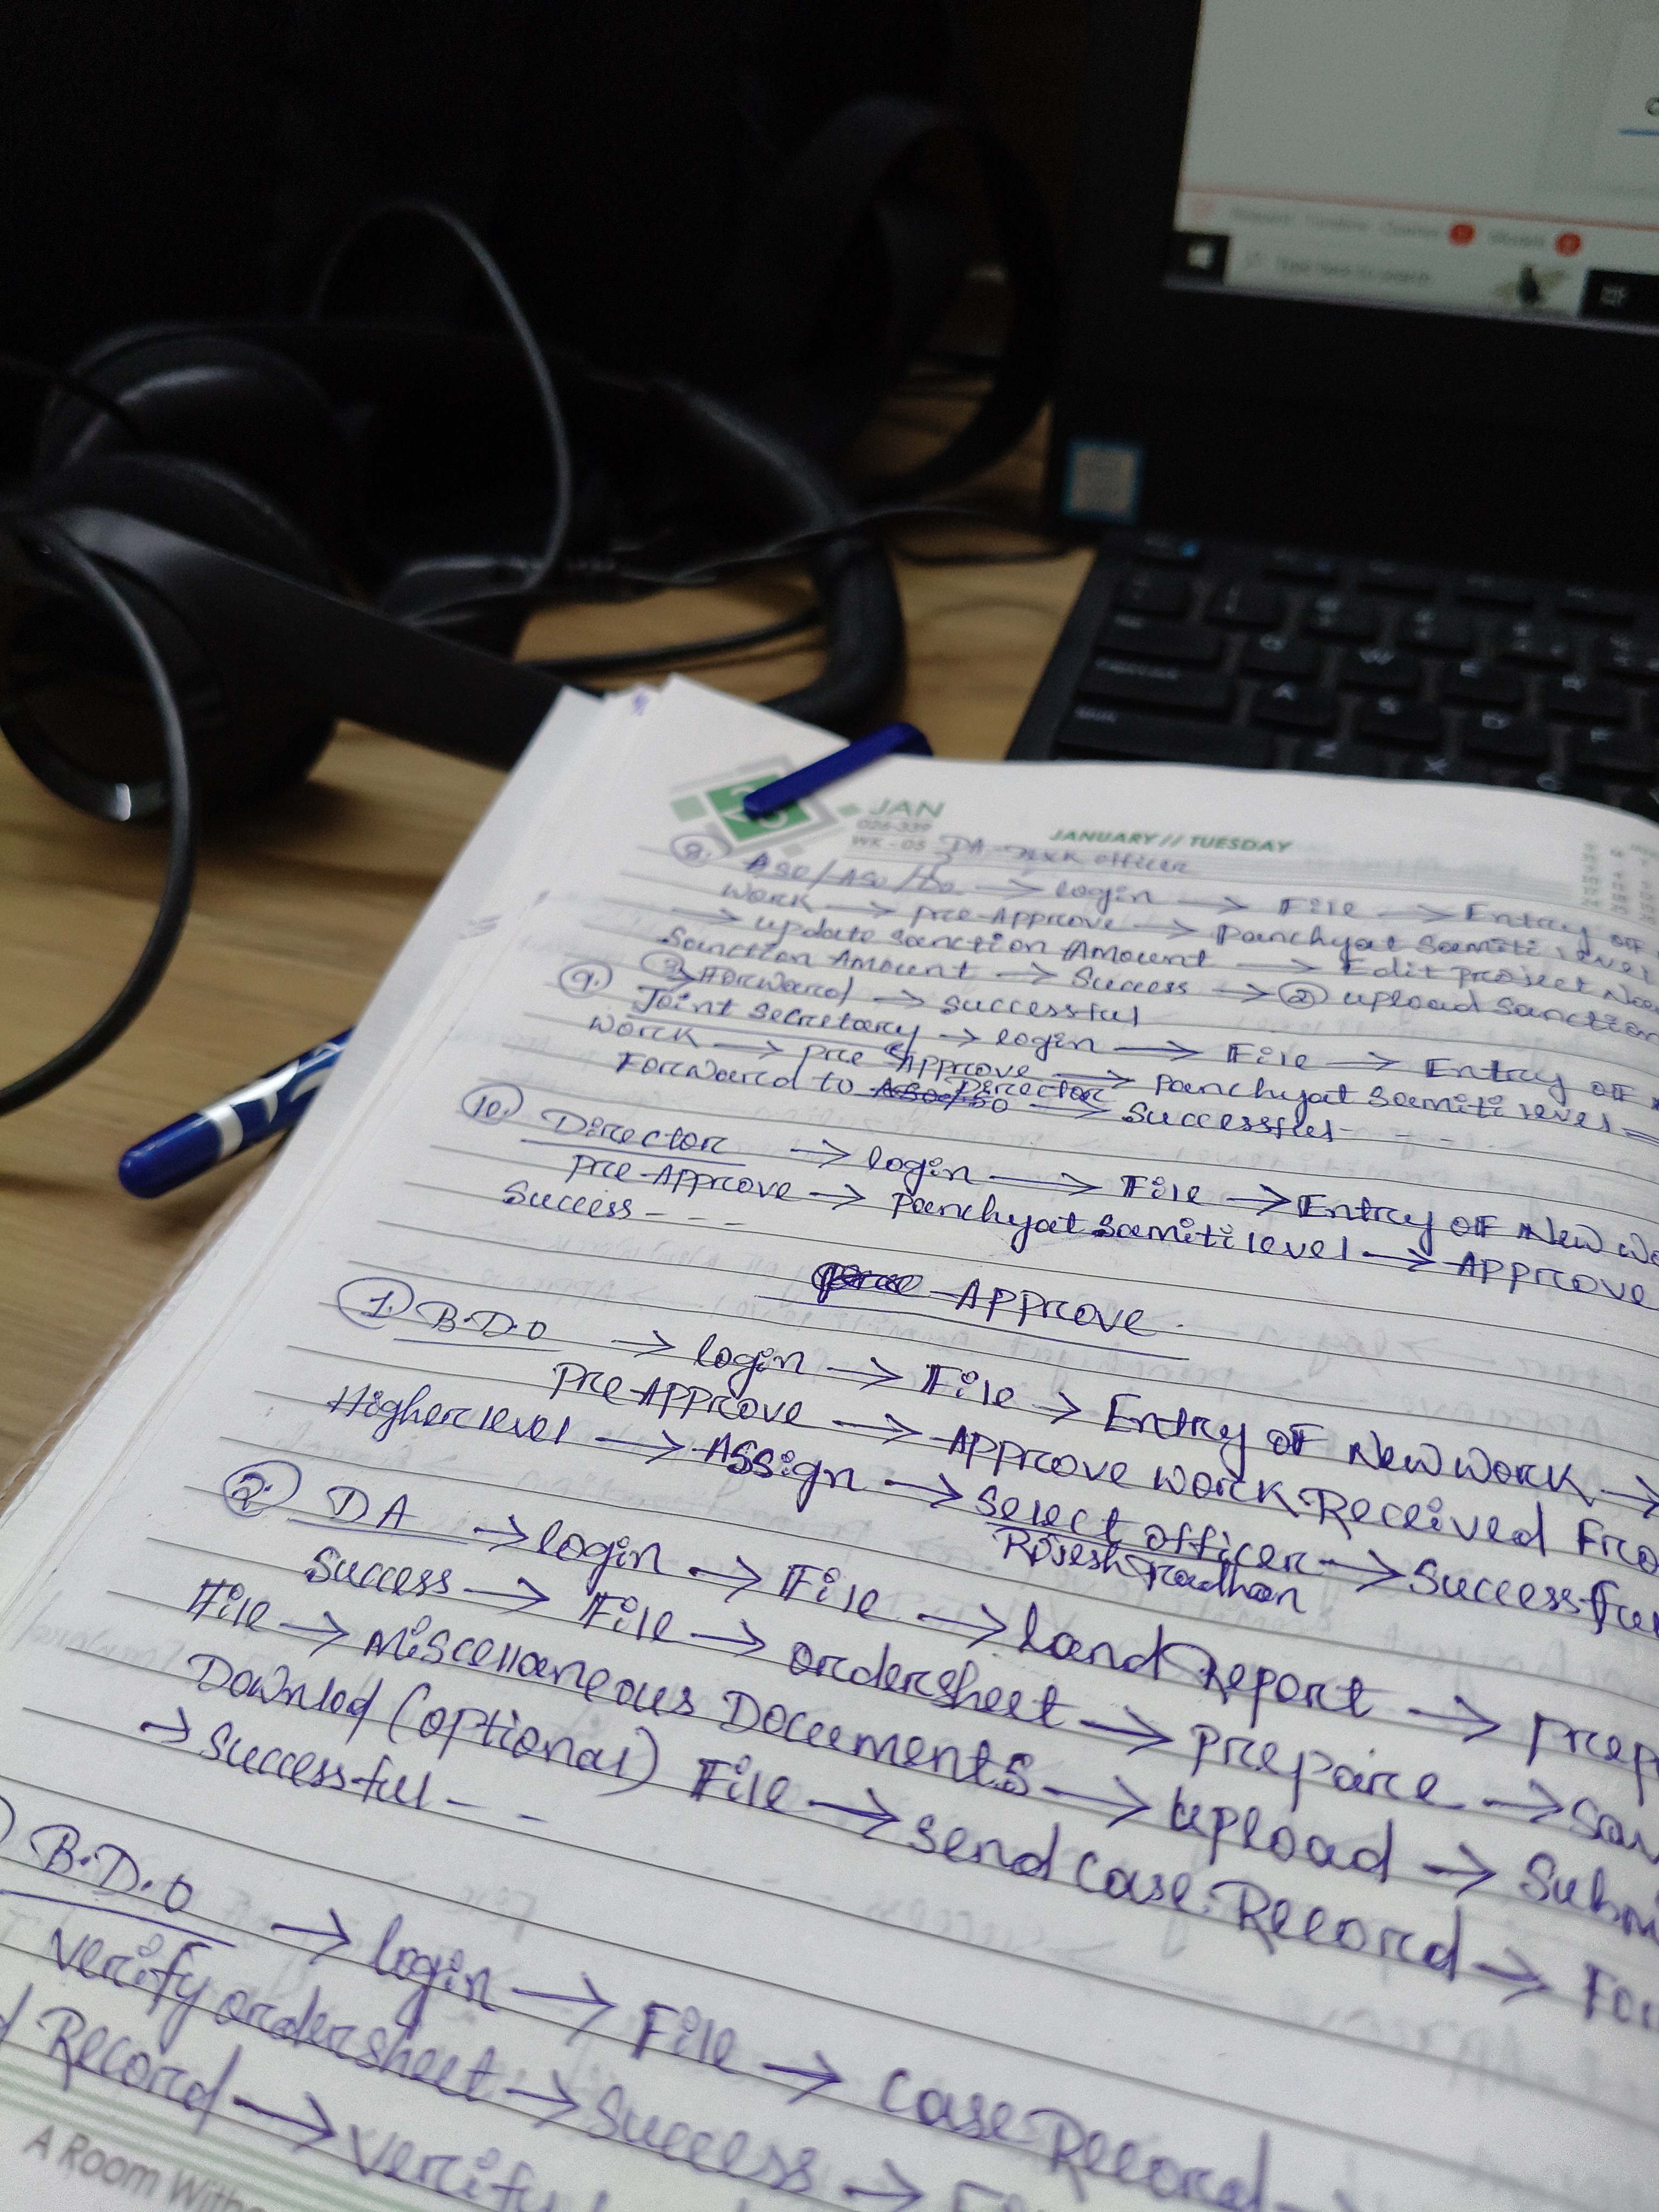 JAN
026-339
WK - 05
JANUARY // TUESDAY
DA officer
8. ASO/ASO/ → login → File → Entry of
work → pre-Approve → panchyat samiti level
→ update sanction Amount → Edit project
Sanction Amount → Success → ② upload Sanction
③ → Forward → successful
9. Joint Secretary → login → File → Entry of
work → pre Approve → panchyat samiti level
Forward to Director → Successful - - -
10. Director → login → File → Entry of New
pre-Approve → panchyat samiti level → Approve
Success - - -
Approve
1. B.D.O → login → File → Entry of New work →
pre-Approve → Approve work Received
Higher level → Assign → select officer → Successful
Rajesh Pradhan
2. DA → login → File → land Report →
Success → File → ordersheet → prepaire →
File → Miscellaneous Documents → upload →
Downlod (optional) File → send case Record →
→ Successful - -
B.D.O → login → File → case Record
verify ordersheet → Success →
Record → verify
A Room
Type here to search